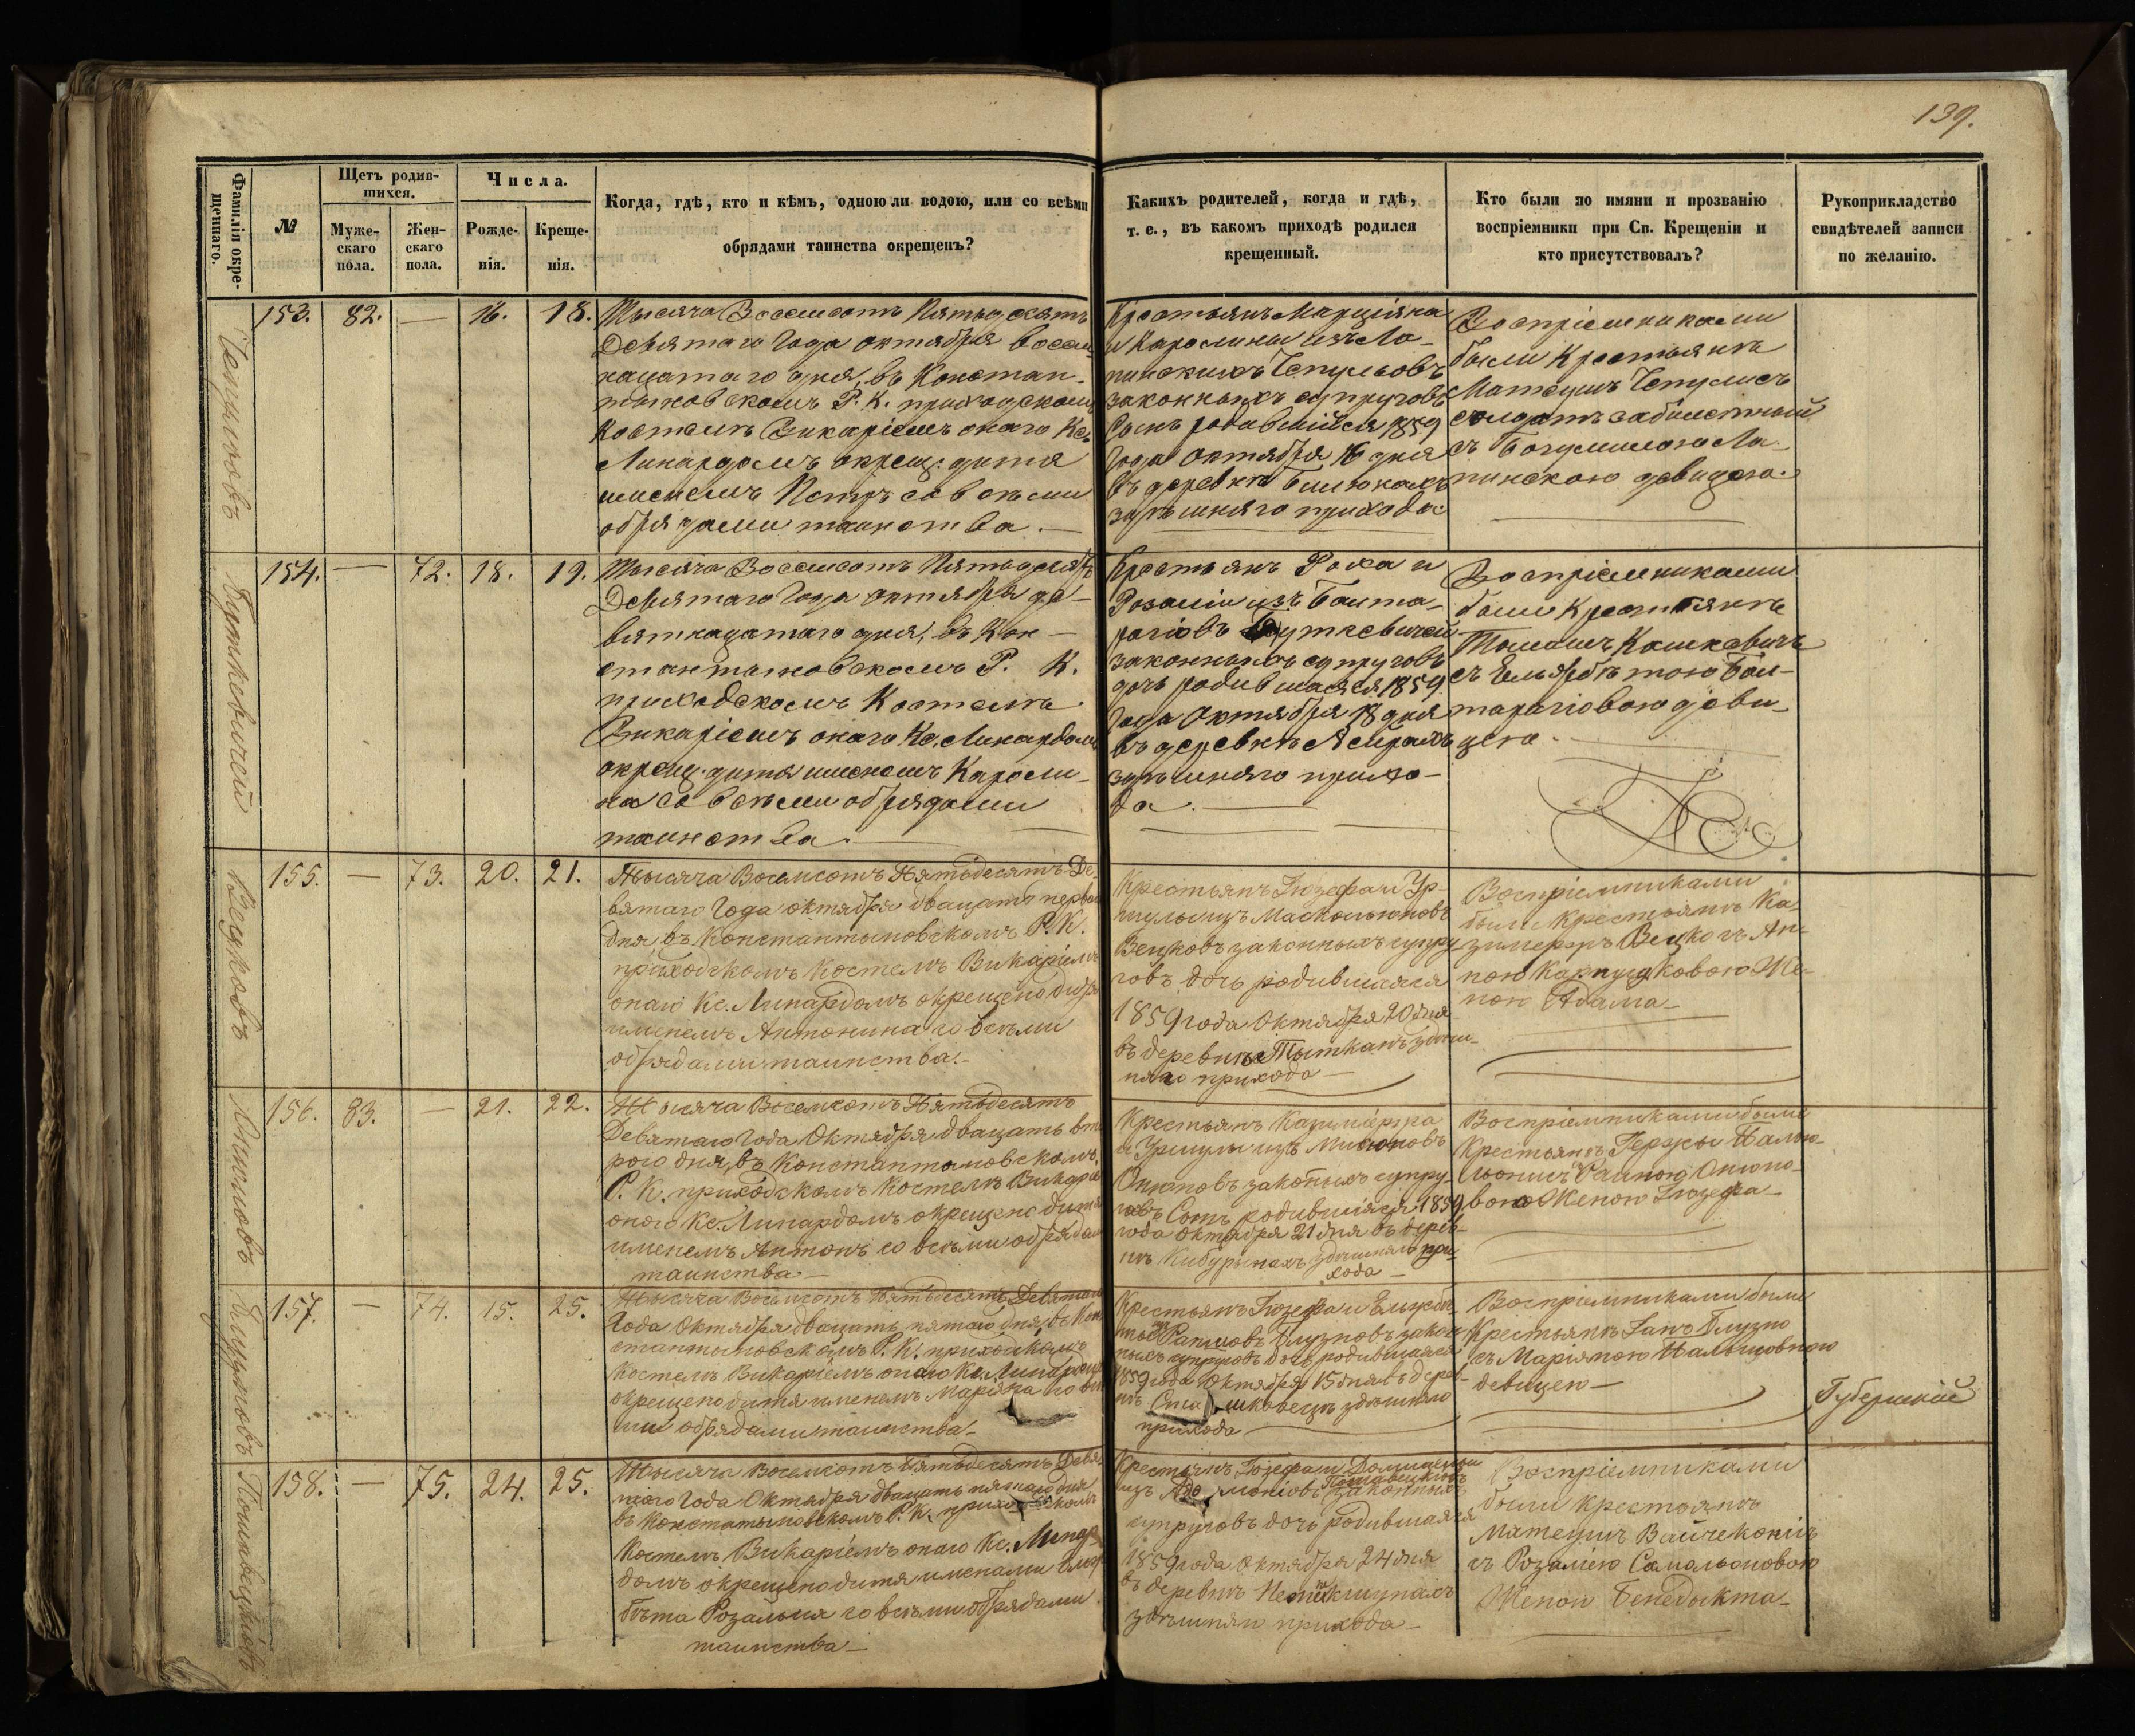 139.
Фамилія окре-
щеннаго.
№
Щетъ родив-
шихся.
Муже-
скаго
пола.
Жен-
скаго
пола.
Числа.
Рожде-
нія.
Креще-
нія.
Когда, гдѣ, кто и кѣмъ, одною ли водою, или со всѣми
обрядами таинства окрещенъ?
Какихъ родителей, когда и гдѣ,
т. е., въ какомъ приходѣ родился
крещенный.
Кто были по имяни и прозванію
воспріемники при Св. Крещеніи и
кто присутствовалъ?
Рукоприкладство
свидѣтелей записи
по желанію.
153.
82.
—
16.
18.
Тысяча Восемсотъ Пятьдесятъ
Девятаго Года октября восем-
надцатаго дня, въ Констан-
тыновскомъ Р. К. приходскомъ
Костелѣ Викаріемъ онаго Кс.
Линардомъ окрещ: дитя
именемъ Петръ со всѣми
обрядами таинства. —
Крестьянъ Марціяна
и Каролины изъ Ла-
пинскихъ Чепульовъ
законныхъ супруговъ
Сынъ родившійся 1859
Года Октября 16 дня
въ деревнѣ
здѣшняго прихода.
Воспріемниками
были Крестьянъ
Матеушъ Чепулисъ
солдатъ забилетный
съ Богумилою Ла-
пинскою девицею.
154.
—
72.
18.
19.
Буткевичей
Тысяча Восемсотъ Пятьдесятъ
Девятаго Года октября де-
вятнадцатаго дня, въ Кон-
стантыновскомъ Р. К.
приходскомъ Костелѣ
Викаріемъ онаго Кс. Линардомъ
окрещ: дитя именемъ Кароли-
на со всѣми обрядами
таинства. —
Крестьянъ Роха и
Розаліи изъ Балта-
рагіовъ Буткевичей
законныхъ супруговъ
дочь родившаяся 1859
Года Октября 18 дня
въ деревнѣ
здѣшняго прихо-
да. —
Воспріемниками
были Крестьянъ
Томашъ
съ Ельзбѣтою Бал-
тарагіовою деви-
цею.
155.
—
73.
20.
21.
Вецковъ
Тысяча Восемсотъ Пятьдесятъ Де-
вятаго Года октября двацать перваго
дня въ Константыновскомъ Р. К.
приходскомъ Костелѣ Викаріемъ
онаго Кс. Линардомъ окрещено дитя
именемъ Антонина со всѣми
обрядами таинства. —
Крестьянъ Іозефа и Ур-
шули изъ
Вецковъ законныхъ супру-
говъ дочь родившаяся
1859 года Октября 20 дня
въ деревнѣ здѣш-
няго прихода —
Воспріемниками
были Крестьянъ Ка-
зимеръ Вецко съ Ан-
ною Же-
ною Адама —
156.
83.
—
21.
22.
Тысяча Восемсотъ Пятьдесятъ
Девятаго Года Октября двацать вто
рого дня, въ Константыновскомъ
Р. К. приходскомъ Костелѣ Викаріе
онаго Кс. Линардомъ окрещено дитя
именемъ Антонъ со всѣми обрядами
таинства —
Крестьянъ Казимѣра
и Уршули изъ
законныхъ супру-
говъ Сынъ родившійся 1859
года Октября 21 дня въ дерев-
нѣ здѣшняго при-
хода —
Воспріемниками были
Крестьянъ
вою Женою Іозефа —
157.
—
74.
15.
25.
Тысяча Восемсотъ Пятьдесятъ Девятаго
Года Октября двацать пятаго дня, въ Кон
стантыновскомъ Р. К. приходскомъ
Костелѣ Викаріемъ онаго Кс. Линардомъ
окрещено дитя именемъ Маріяна со всѣ
ми обрядами таинства —
Крестьянъ Іозефа и Ельжбѣ-
ты изъ закон
ныхъ супруговъ дочь родившаяся
1859 года Октября 15 дня въ дерев-
нѣ здѣшняго
прихода —
Воспріемниками были
Крестьянъ Янъ Глузно
съ Маріяною
девицею —
Губерискіе
158.
—
75.
24.
25.
Тысяча Восемсотъ Пятьдесятъ Девя
таго Года Октября двацать пятаго дня
въ Констатыновскомъ Р. К. приходскомъ
Костелѣ Викаріемъ онаго Кс. Линар-
домъ окрещено дитя именами Ельж
бѣта Розалія со всѣми обрядами
таинства —
Крестьянъ Іозефа и Доминыки
изъ законныхъ
супруговъ дочь родившаяся
1859 года Октября 24 дня
въ деревнѣ
здѣшняго прихода —
Воспріемниками
были Крестьянъ
Матеушъ
съ Розаліею
Женою Бенедыкта —